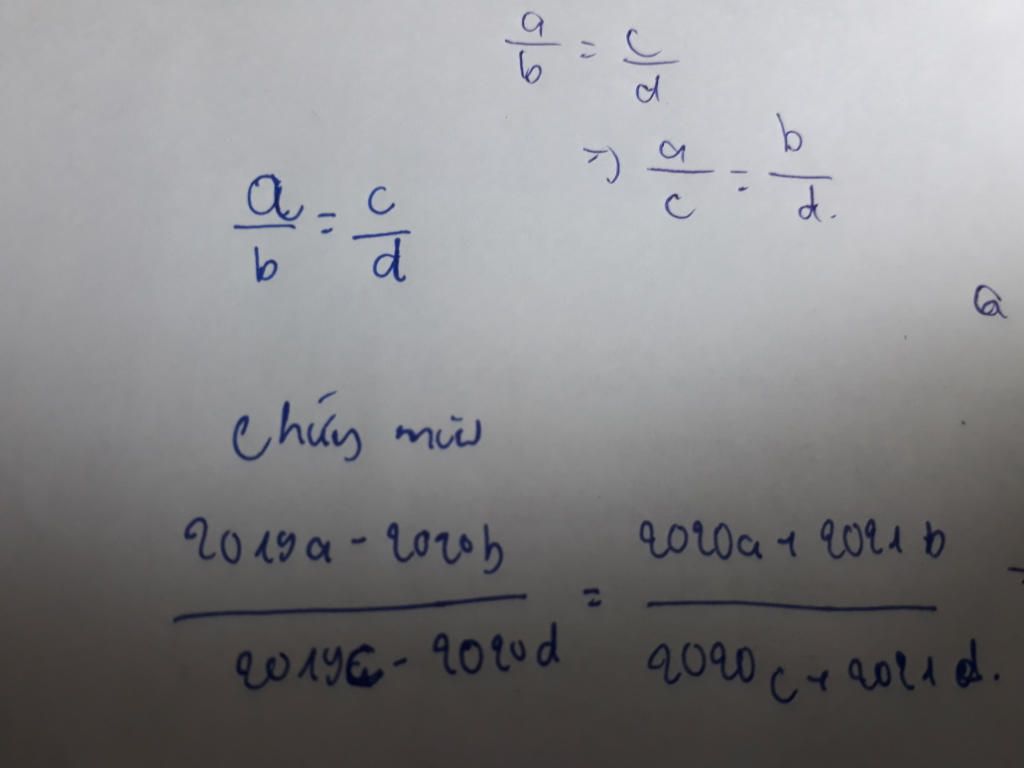 a/b = c/d
=> a/c = b/d.
a/b = c/d
a
Chứng minh
(2019a - 2020b)/(2019c - 2020d) = (2020a + 2021b)/(2020c + 2021d).